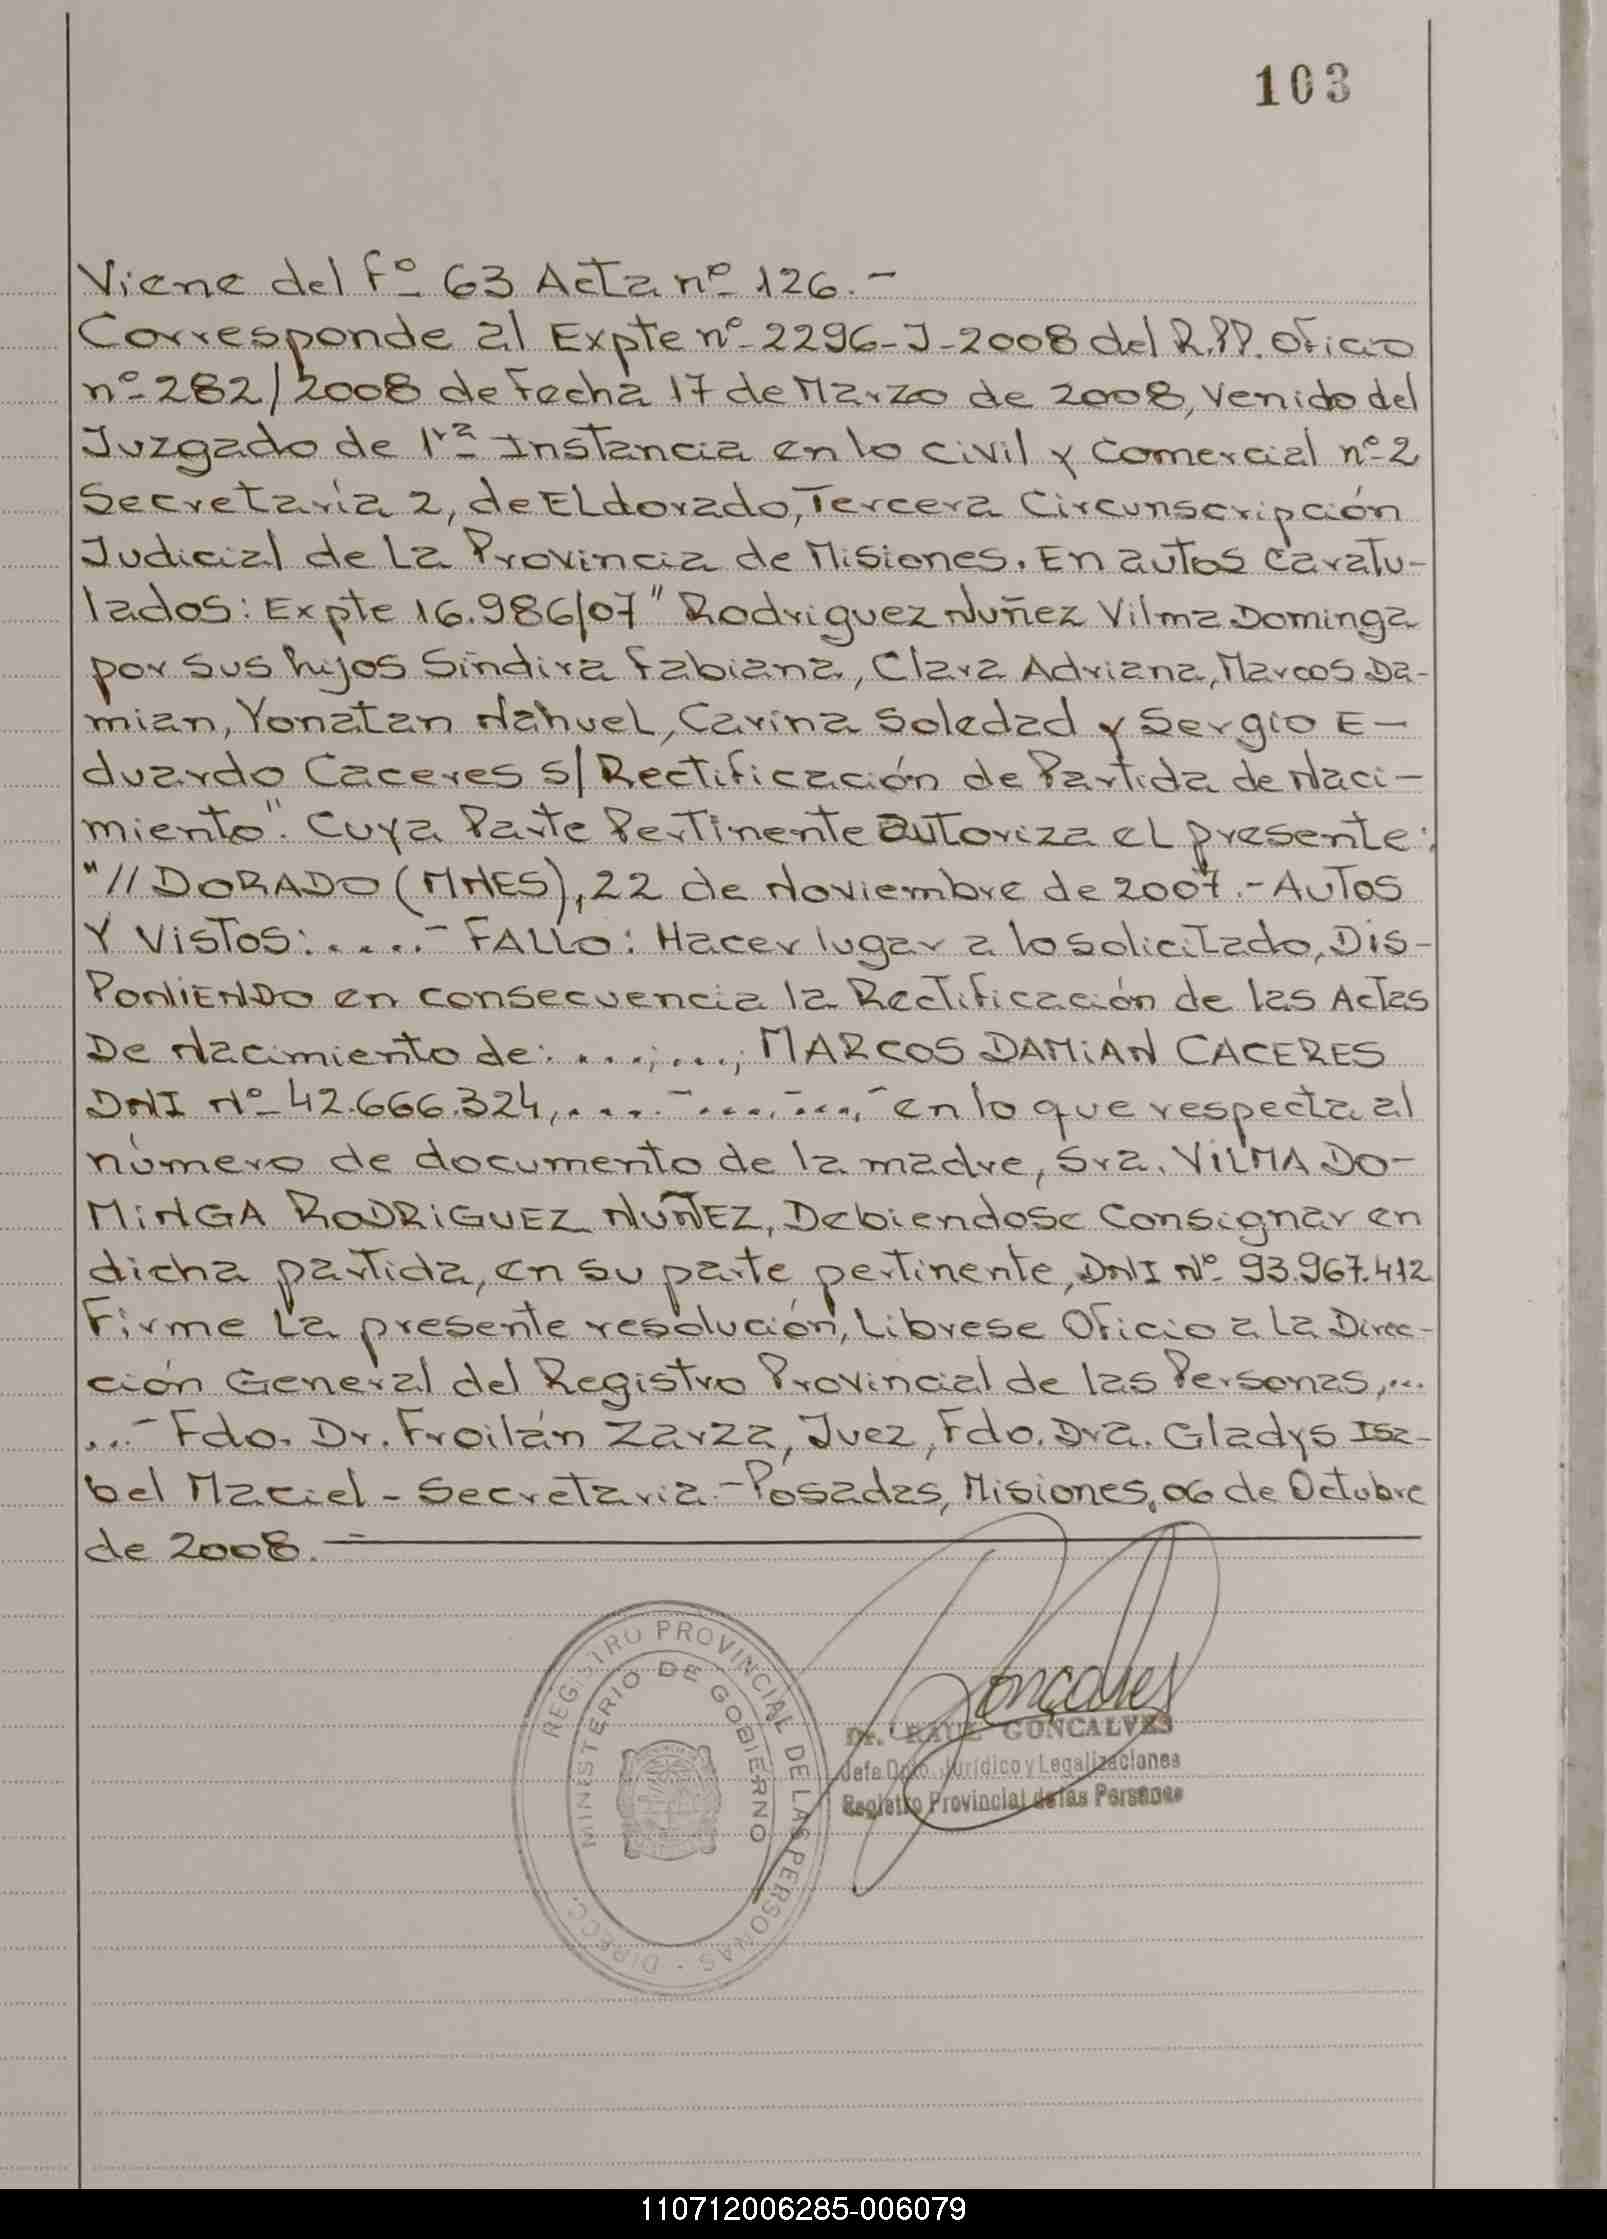 103
Viene del Fº 63 Acta nº 126.-
Corresponde al Expte nº 2296-J-2008 del R.P.P. Oficio
nº 282/2008 de Fecha 17 de Marzo de 2008, Venido del
Juzgado de 1ra Instancia en lo Civil y Comercial nº 2
Secretaría 2, de ELdorado, Tercera Circunscripción
Judicial de La Provincia de Misiones. En autos caratu-
lados: Expte 16.986/07 "Rodriguez Nuñez Vilma Dominga
por sus hijos Sindira Fabiana, Clara Adriana, Marcos Da-
mian, Yonatan Nahuel, Carina Soledad y Sergio E-
duardo Caceres s/ Rectificación de Partida de Naci-
miento". Cuya Parte Pertinente autoriza el presente:
"//DORADO (MNES), 22 de Noviembre de 2007.- Autos
Y Vistos:.....- FALLO: Hacer lugar a lo solicitado, Dis-
PONIENDO en consecuencia la Rectificación de las Actas
De Nacimiento de: ....;...; MARCOS DAMIAN CACERES
DNI Nº 42.666.324,....-....,-...,- en lo que respecta al
número de documento de la madre, Sra. VILMA DO-
MINGA RODRIGUEZ NUÑEZ, Debiendose Consignar en
dicha partida, en su parte pertinente, DNI Nº 93.967.412
Firme La presente resolución, Librese Oficio a La Direc-
ción General del Registro Provincial de las Personas,...
...- Fdo. Dr. Froilán Zarza, Juez, Fdo. Dra. Gladys Isa-
bel Maciel - Secretaria.- Posadas, Misiones, 06 de Octubre
de 2008.-
REGISTRO PROVINCIAL DE LAS PERSONAS - DIRECC.
MINISTERIO DE GOBIERNO
Goncalves
Dr. RAUL GONCALVES
Jefe Dpto. Jurídico y Legalizaciones
Registro Provincial de las Personas
110712006285-006079